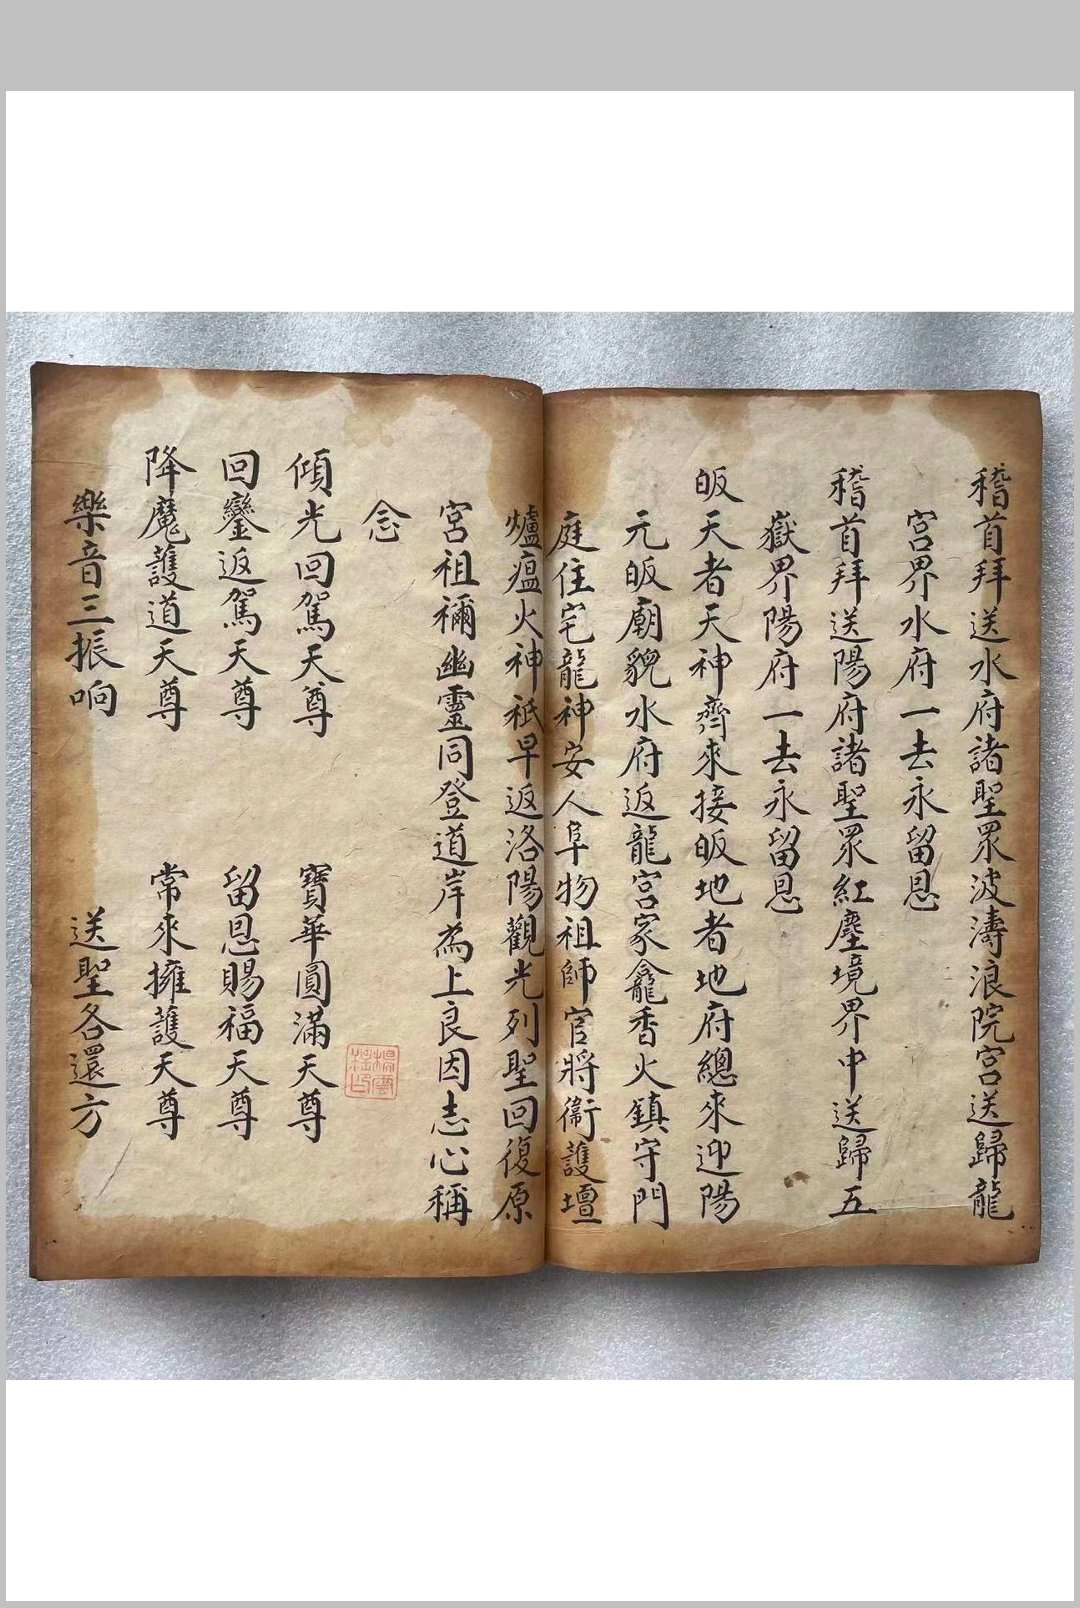 稽首拜送水府諸聖眾波濤浪院宮送歸龍
宮界水府一去永留恩
稽首拜送陽府諸聖眾紅塵境界中送歸五
嶽界陽府一去永留恩
皈天者天神齊來接皈地者地府總來迎陽
元皈廟貌水府返龍宮家龕香火鎮守門
庭住宅龍神安人阜物祖師官將衛護壇
爐瘟火神祇早返洛陽觀光列聖回復原
宮祖禰幽靈同登道岸為上良因志心稱
念
傾光回駕天尊 寶華圓滿天尊
回鑾返駕天尊 留恩賜福天尊
降魔護道天尊 常來擁護天尊
樂音三振响 送聖各還方